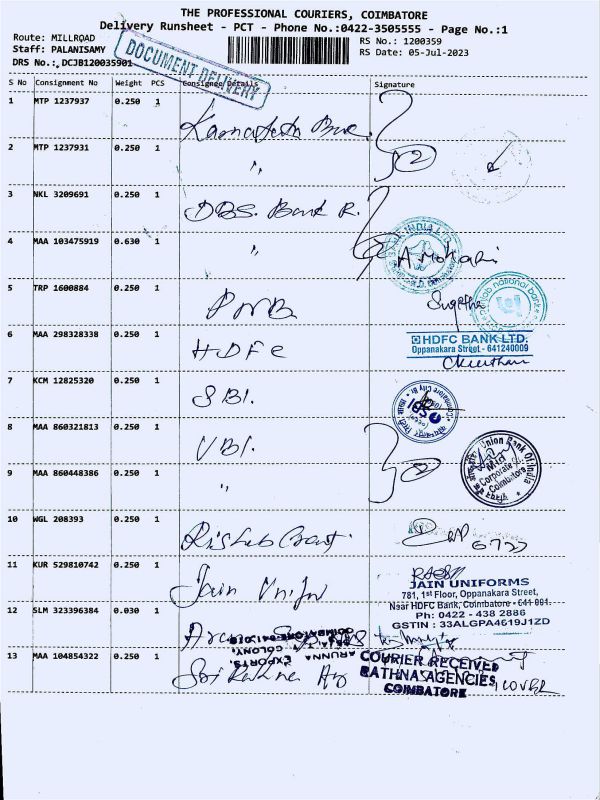 THE PROFESSIONAL COURIERS, COIMBATORE
Delivery Runsheet - PCT - Phone No.:0422-3505555 - Page No.:1
Route: MILLROAD
RS No.: 1200359
Staff: PALANISAMY
RS Date: 05-Jul-2023
DRS No.:,DCJB120035901
DOCUMENT DELIVERY
S No Consignment No Weight PCS Consignee Details Signature
1 MTP 1237937 0.250 1
2 MTP 1237931 0.250 1 "
3 NKL 3209691 0.250 1 DBS. Bank R.
4 MAA 103475919 0.630 1 "
5 TRP 1600884 0.250 1 PNB
6 MAA 298328338 0.250 1 HDFC
HDFC BANK LTD.
Oppanakara Street - 641240009
7 KCM 12825320 0.250 1 SBI.
SBI
8 MAA 860321813 0.250 1 UBI.
Union Bank Of India
Corporate
Coimbatore
9 MAA 860448386 0.250 1 "
10 WGL 208393 0.250 1
11 KUR 529810742 0.250 1 Jain
JAIN UNIFORMS
781, 1st Floor, Oppanakara Street,
Near HDFC Bank, Coimbatore - 641 001.
Ph: 0422 - 438 2886
GSTIN : 33ALGPA4619J1ZD
12 SLM 323396384 0.030 1
ARUNNA
EXPORTS
COLONY,
13 MAA 104854322 0.250 1 Sri Rathna
COURIER RECEIVED
RATHNA AGENCIES,
COIMBATORE